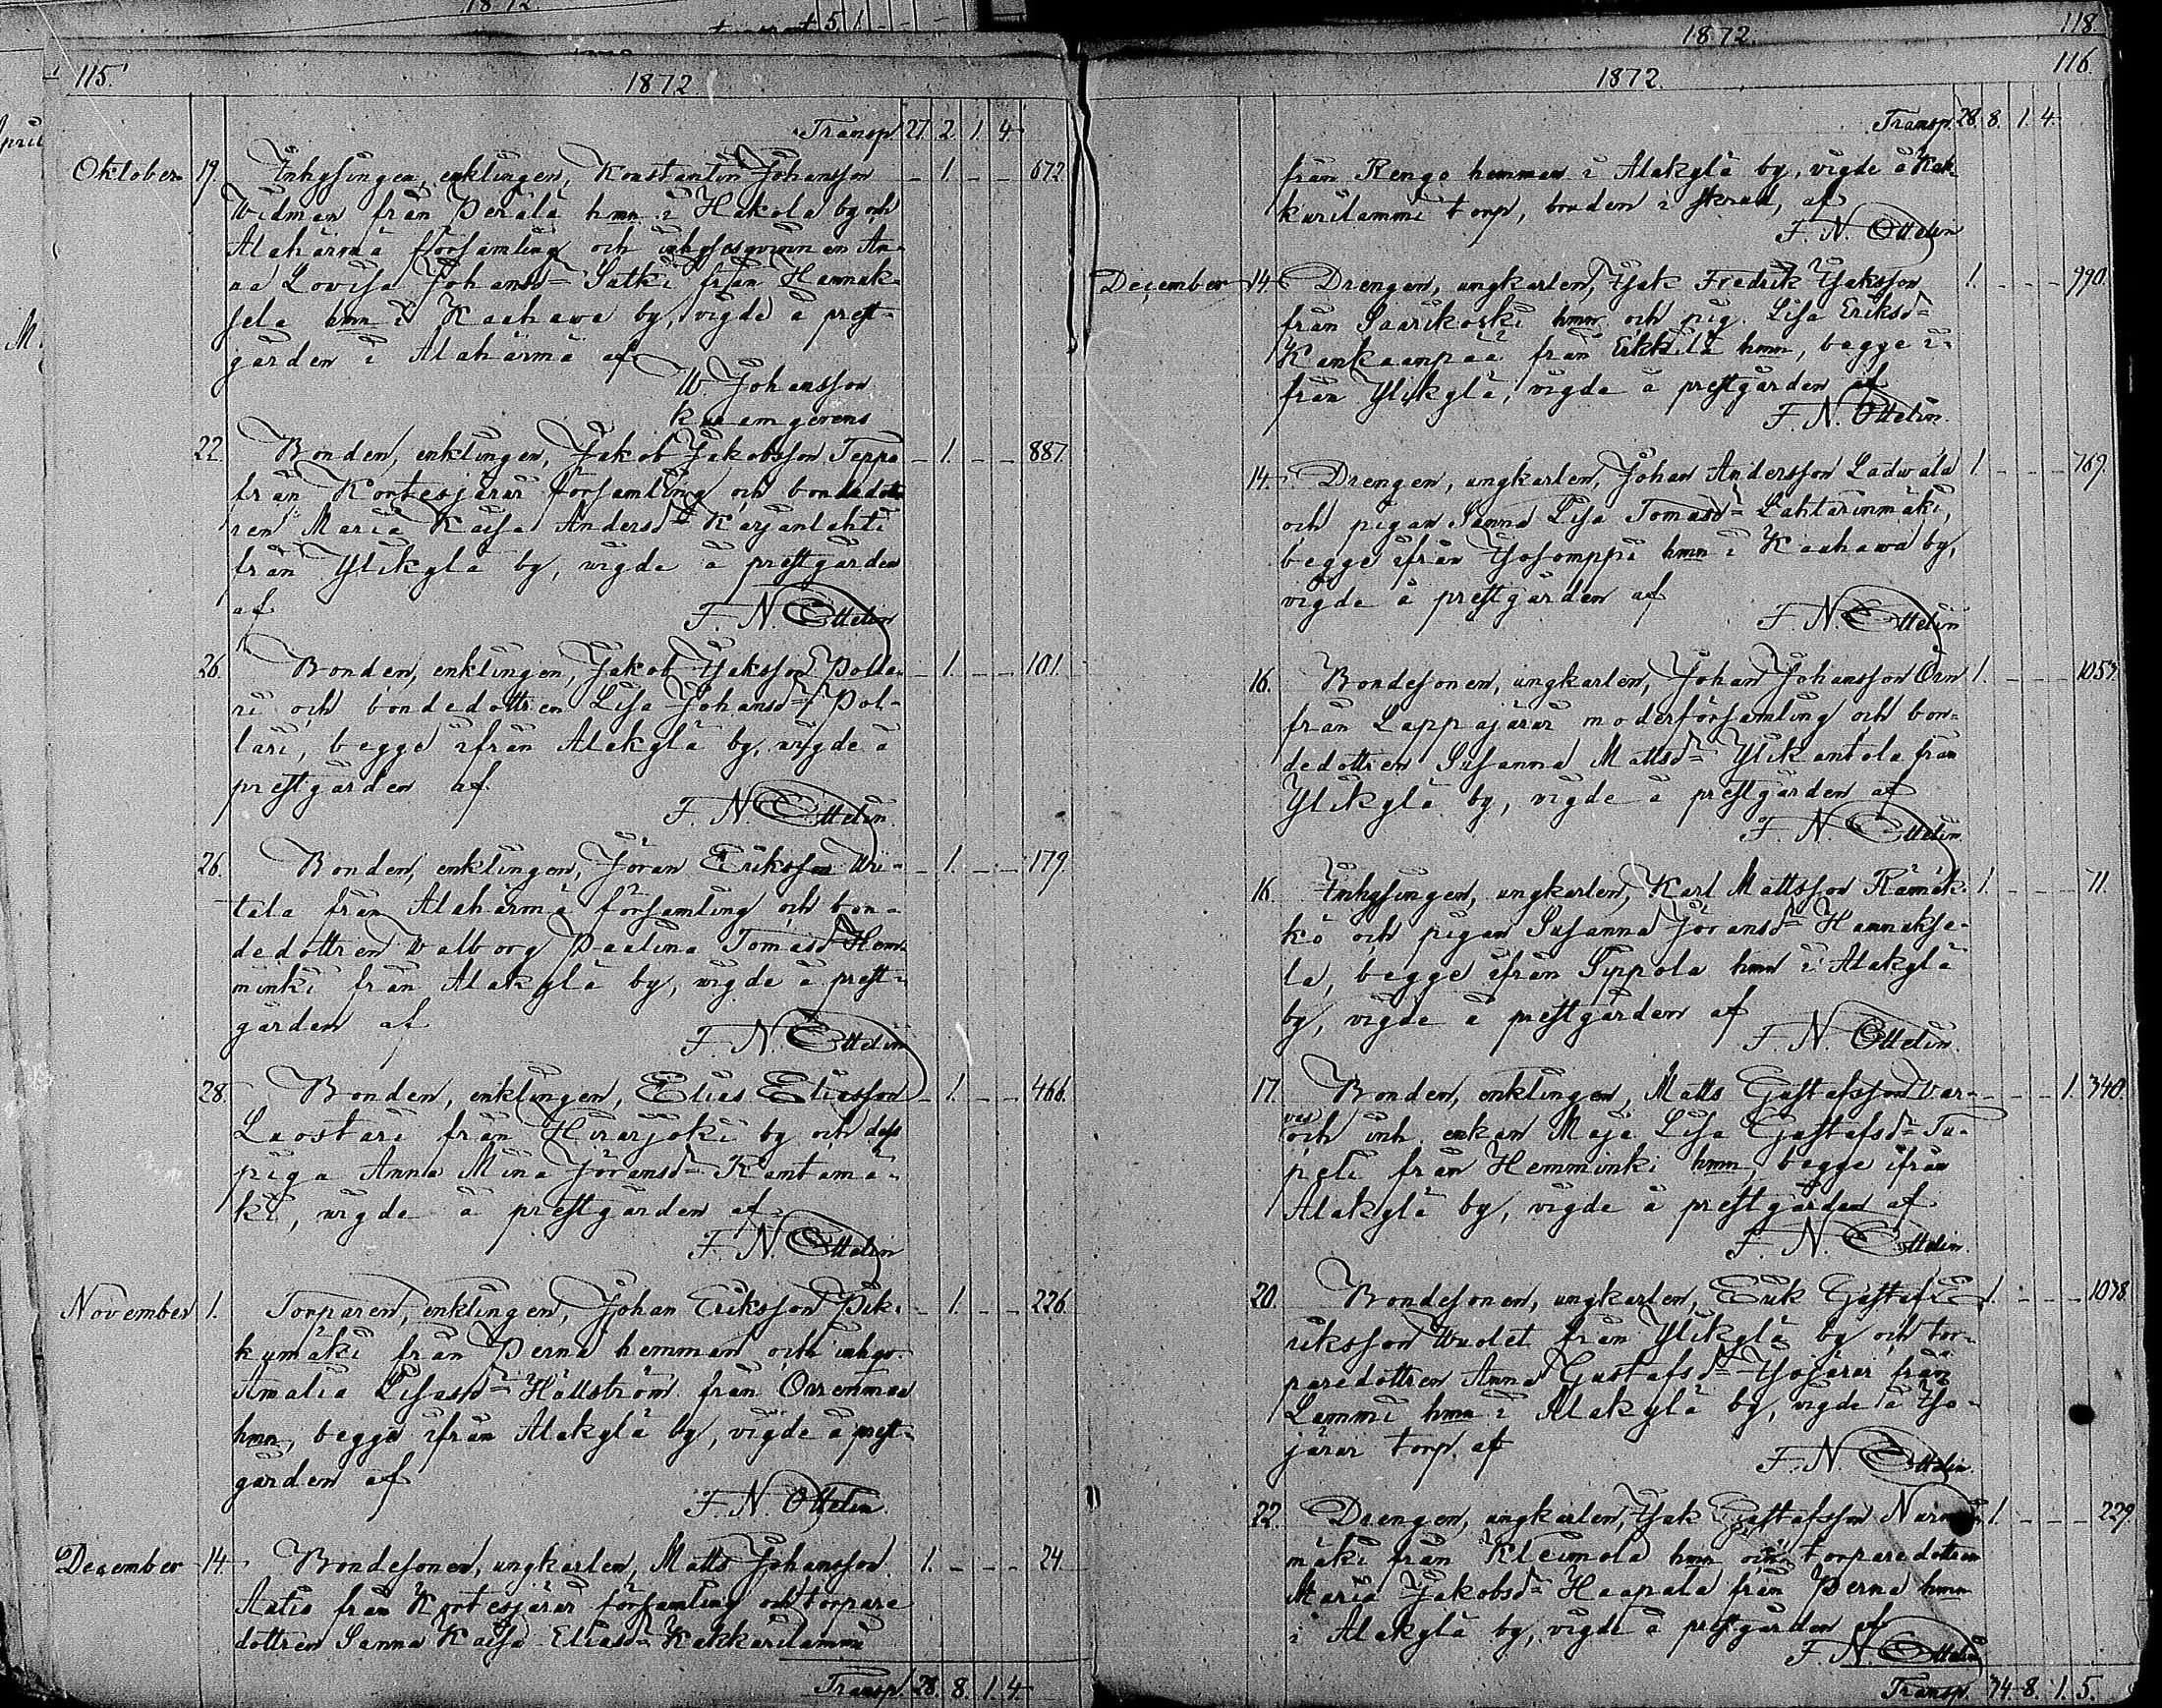 115.
1872
Transp. 27. 2. 1. 4.
Oktober 19. Inhysingen, enklingen, Konstantin Johansson – 1. – – 672.
Widman från Perälä hmn i Hakola by och
Alahärmä församling och inhysesqvinnan An-
na Lovisa Johansdr Salki från Hannuk-
sela hmn i Kauhawa by, vigde å prest-
gården i Alahärmä af
W. Johansson
22. Bonden, enklingen, Jakob Jakobsson Teppo – 1. – – 887.
från Kortesjärvi församling och bondedott-
ren Maria Kaisa Andersdr Karjanlahti
från Ylikylä by, vigde å prestgården
af
F. N. Ottelin
26. Bonden, enklingen, Jakob Isaksson Polla- – 1. – – 101.
ri och bondedottren Lisa Johansdr Pol-
lari, begge ifrån Alakylä by, vigde å
prestgården af
F. N. Ottelin.
26. Bonden, enklingen, Jöran Eriksson Wii- – 1. – – 179.
tala från Alahärmä församling och bon-
dedottren Valborg Paulina Tomasdr Hem-
minki från Alakylä by, vigde å prest-
gården af
F. N. Ottelin
28. Bonden, enklingen, Elias Eliasson – 1. – – 466.
Luostari från Hirvijoki by och dess
piga Anna Mina Jöransdr Rantamä-
ki, vigde å prestgården af
F. N. Ottelin
November 1. Torparen, enklingen, Johan Eriksson Pik- – 1. – – 226.
kumäki från Perna hemman och inhqv.
Amalia Lisasdr Hällström från Orrenmaa
hmn, begge ifrån Alakylä by, vigde å prest-
gården af
F. N. Ottelin.
December 14. Bondesonen, ungkarlen, Matts Johansson 1. – – – 24.
Antio från Kortesjärvi församling och torpare
dottren Sanna Kaisa Eliasdr Kakkurilammi
Transp. 28. 8. 1. 4.
1872.
118.
1872.
116.
Transp. 28. 8. 1. 4.
från Rengo hemman i Alakylä by, vigde å Kak-
kurilammi torp, bruden i skrud, af
F. N. Ottelin
December 14. Drengen, ungkarlen, Isak Fredrik Isaksson 1. – – – 990.
från Saarikoski hmn och pig. Lisa Eriksdr
Kankaanpää från Erkkilä hmn, begge i-
från Ylikylä, vigde å prestgården af
F. N. Ottelin.
14. Drengen, ungkarlen, Johan Andersson Ladwala 1. – – – 769.
och pigan Sanna Lisa Tomasdr Lahtarinmäki,
begge ifrån Isosomppi hmn i Kauhawa by,
vigde å prestgården af
F. N. Ottelin
16. Bondesonen, ungkarlen, Johan Johansson Orn 1. – – – 1053.
från Lappajärvi moderförsamling och bon-
dedottren Susanna Mattsdr Ylikantola från
Ylikylä by, vigde å prestgården af
F. N. Ottelin
16. Inhysingen, ungkarlen, Karl Mattsson Rämäk- 1. – – – 71.
kö och pigan Susanna Jöransdr Hannukse-
la, begge ifrån Sippola hmn i Alakylä
by, vigde å prestgården af
F. N. Ottelin.
17. Bonden, enklingen, Matts Gustafsson Var- – – – 1. 340.
vas
och inh. enkan Maja Lisa Gustafsdr Tu-
peli från Hemminki hmn, begge ifrån
Alakylä by, vigde å prestgården af
F. N. Ottelin.
20. Bondesonen, ungkarlen, Erik Gustaf E- 1. – – – 1038.
riksson Wuolet från Ylikylä by och tor-
paredottren Anna Gustafsdr Isojärvi från
Lammi hmn i Alakylä by, vigde å Iso-
järvi torp af
F. N. Ottelin.
22. Drengen, ungkarlen, Isak Gustafsson 1. – – – 229.
mäki från Kleimola hmn och torparedottren
Maria Jakobsdr Haapala från Perna hmn
i Alakylä by, vigde å prestgården af
F. N. Ottelin
Transp. 34. 8. 1. 5.